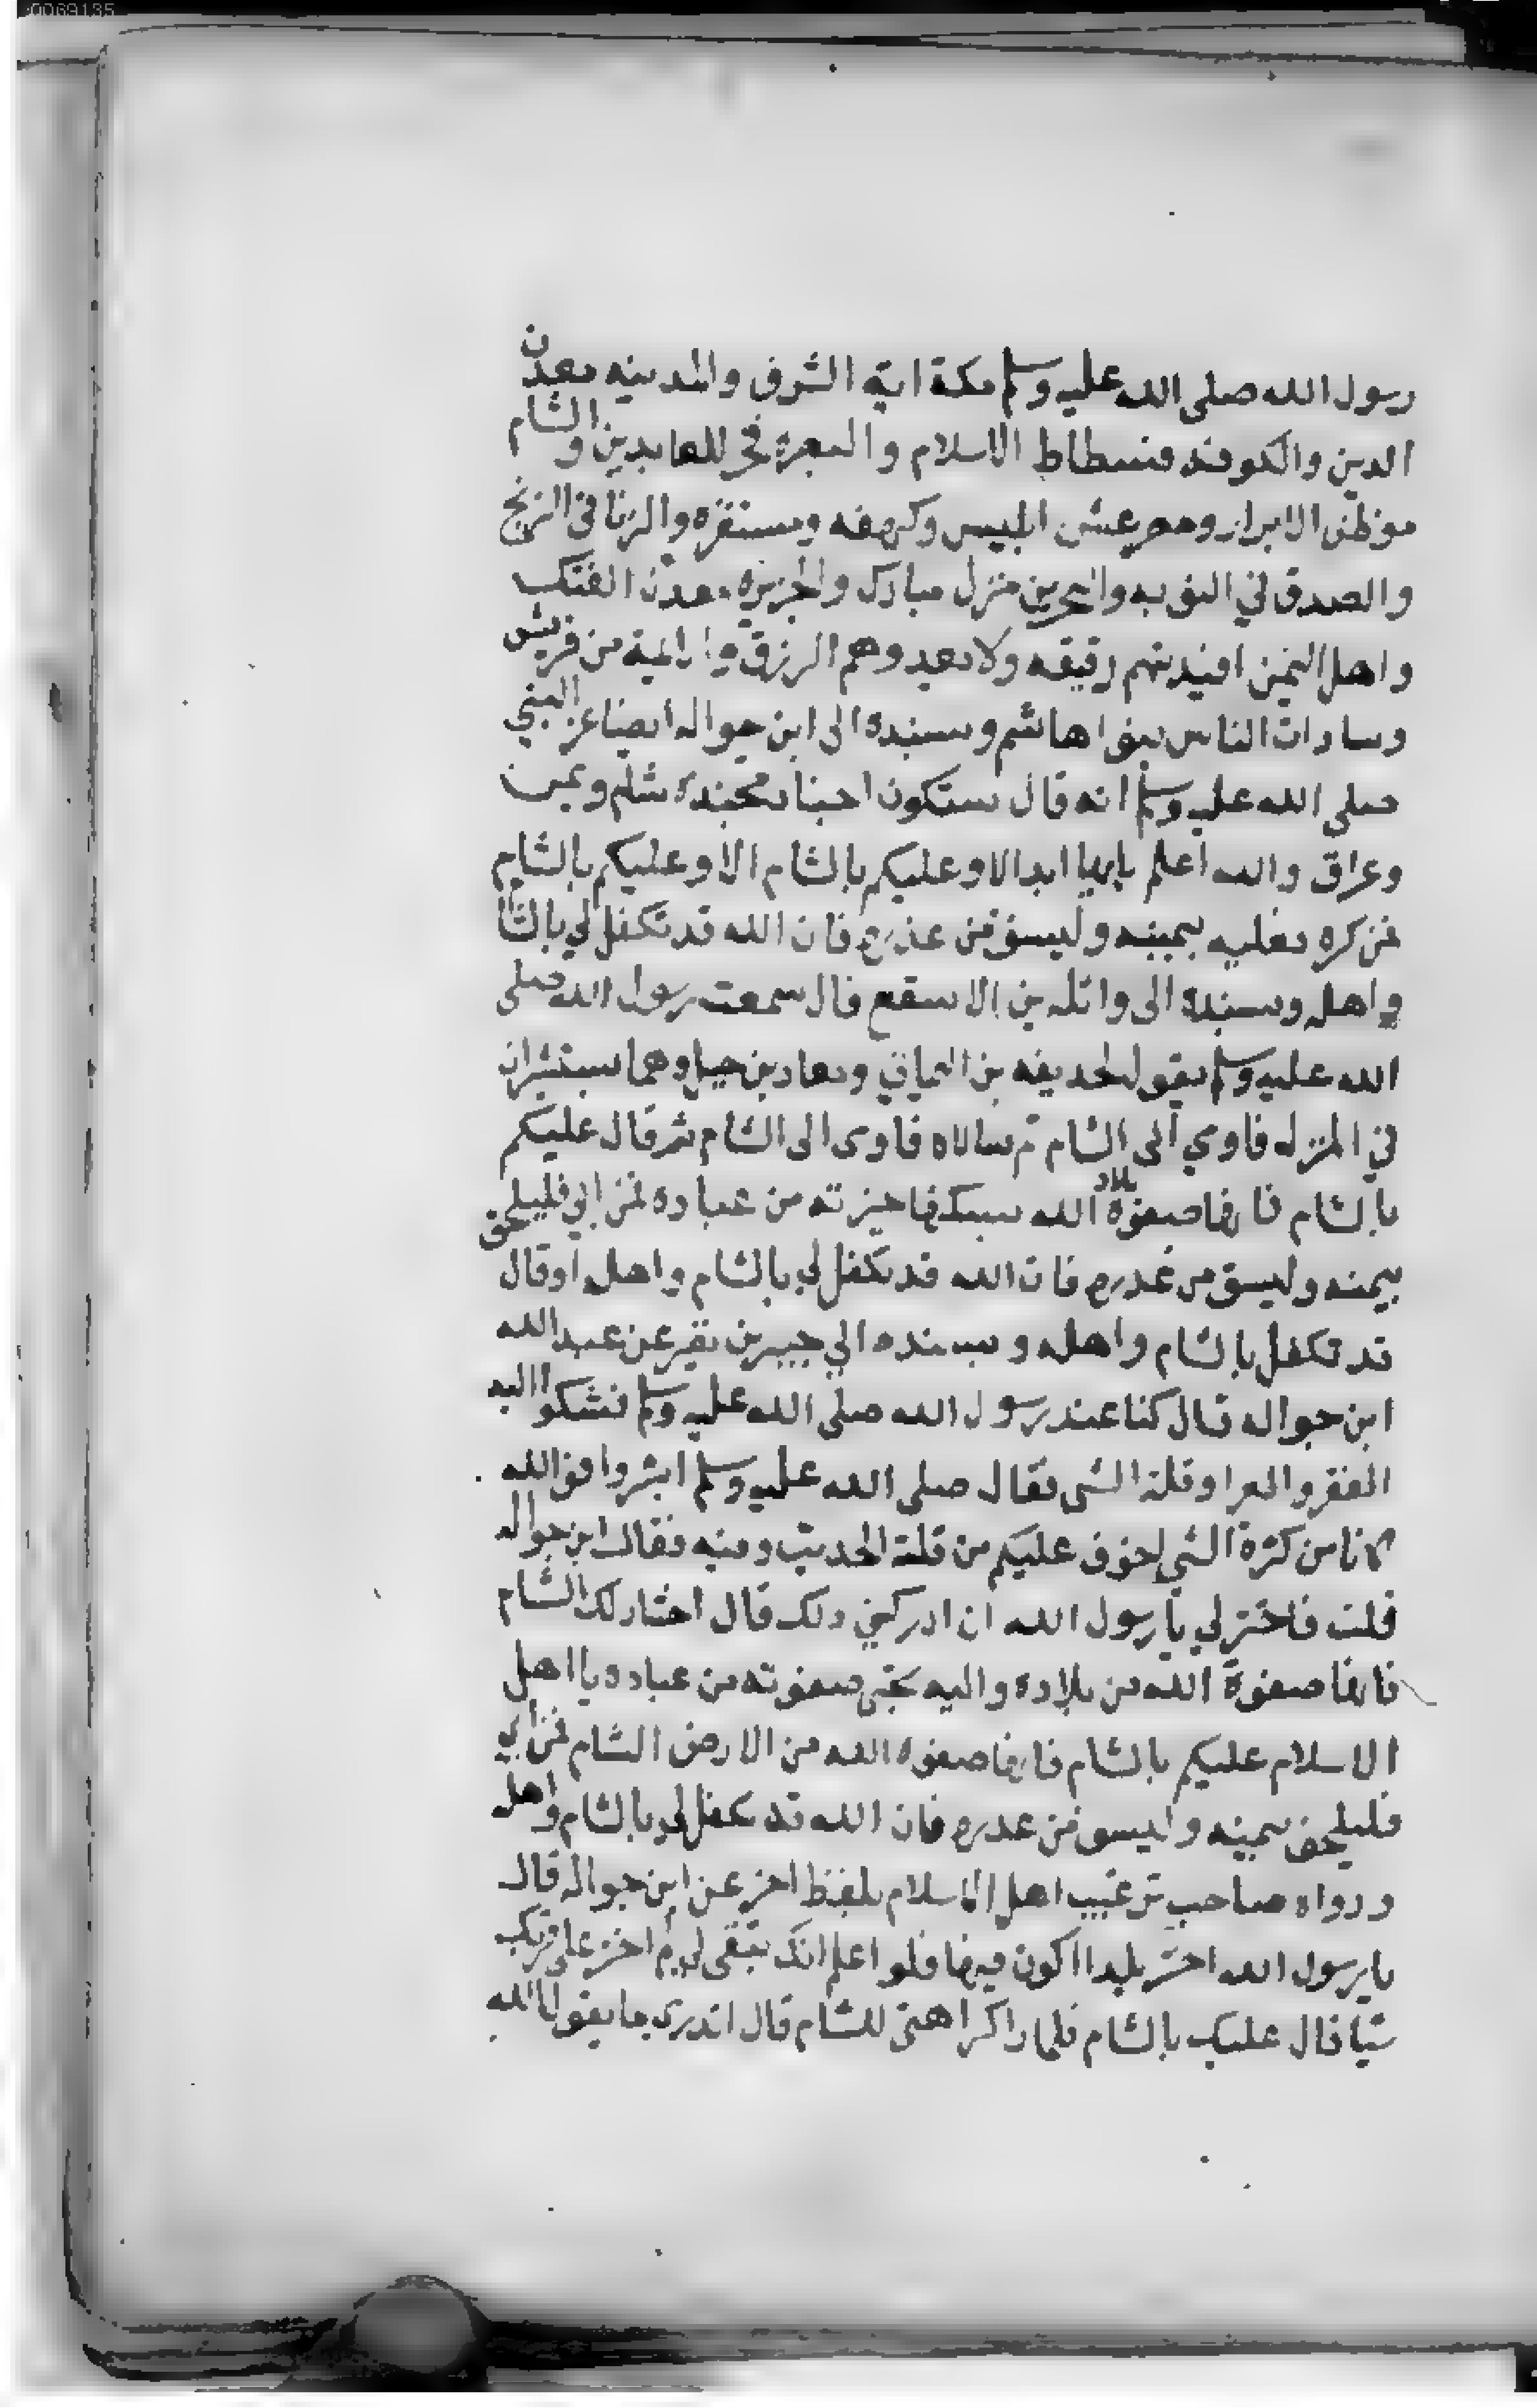 0069135
رسول الله صلى الله عليه وسلم مكة اية الشرف والمدينه معدن
الدين والكوفه فسطاط الاسلام والبصره فخر للعابدين والشام
موطن الابرار ومصر عش ابليس وكهفه ومستقره والزنا في الزنج
والصدق في النوبه والبحرين منزل مبارك والجزيره معدن الفتك
واهل اليمن افيدتهم رقيقه ولا يعدوهم الرزق والايمة من قريش
وسادات الناس بنوا هاشم وبسنده الى ابن حواله ايضا عن النبي
صلى الله عليه وسلم انه قال ستكون اجنادمجنده شام ويمن
وعراق والله اعلم بايها ابدا الا وعليكم بالشام الا وعليكم بالشام
فمن كره فعليه بيمينه وليسق من غدره فان الله قد تكفل لي بالشا
واهله وبسنده الى واثله بن الاسقع قال سمعت رسول الله صلى
الله عليه وسلم يقول لحديفه بن اليماني ومعاد بن جبل وهما يستشران
في المنزل فاوي الى الشام تم سالاه فاوى الى الشام ثم قال عليكم
بالشام فانها صفوة بلاد الله يسكنها خيرته من عباده فمن ابي فليلحق
بيمنه وليسق من غدره فان الله قد تكفل لي بالشام واهله اوقال
قد تكفل بالشام واهله وبسنده الي جبير بن نفير عن عبد الله
ابن حواله قال كنا عند رسول الله صلى الله عليه وسلم نشكوا اليه
الفقر والعرا وقلة الشى فقال صلى الله عليه وسلم ابشروا فوالله
لانا من كثرة الشي اخوف عليكم من قلته الحديث ومنيه فقال ابن حواله
قلت فاختر لي يارسول الله ان ادركني دلك قال اختار لك الشام
فانها صفوة الله من بلاده واليه يجتبى صفوته من عباده يا اهل
الاسلام عليكم بالشام فانها صفوه الله من الارض الشام فمن ابي
فليلحق بيمينه وليسق من غدره فان الله قد تكفل لي بالشام واهله
ورواه صاحب ترغيب اهل الاسلام بلفظ اخر عن ابن حواله قال
يارسول الله اختر بلدا اكون فيها فلو اعلم انك تبقى لي لم اختر على قربك
شيا قال عليك بالشام فلما راكراهتى للشام قال اتدرى ما يقول الله